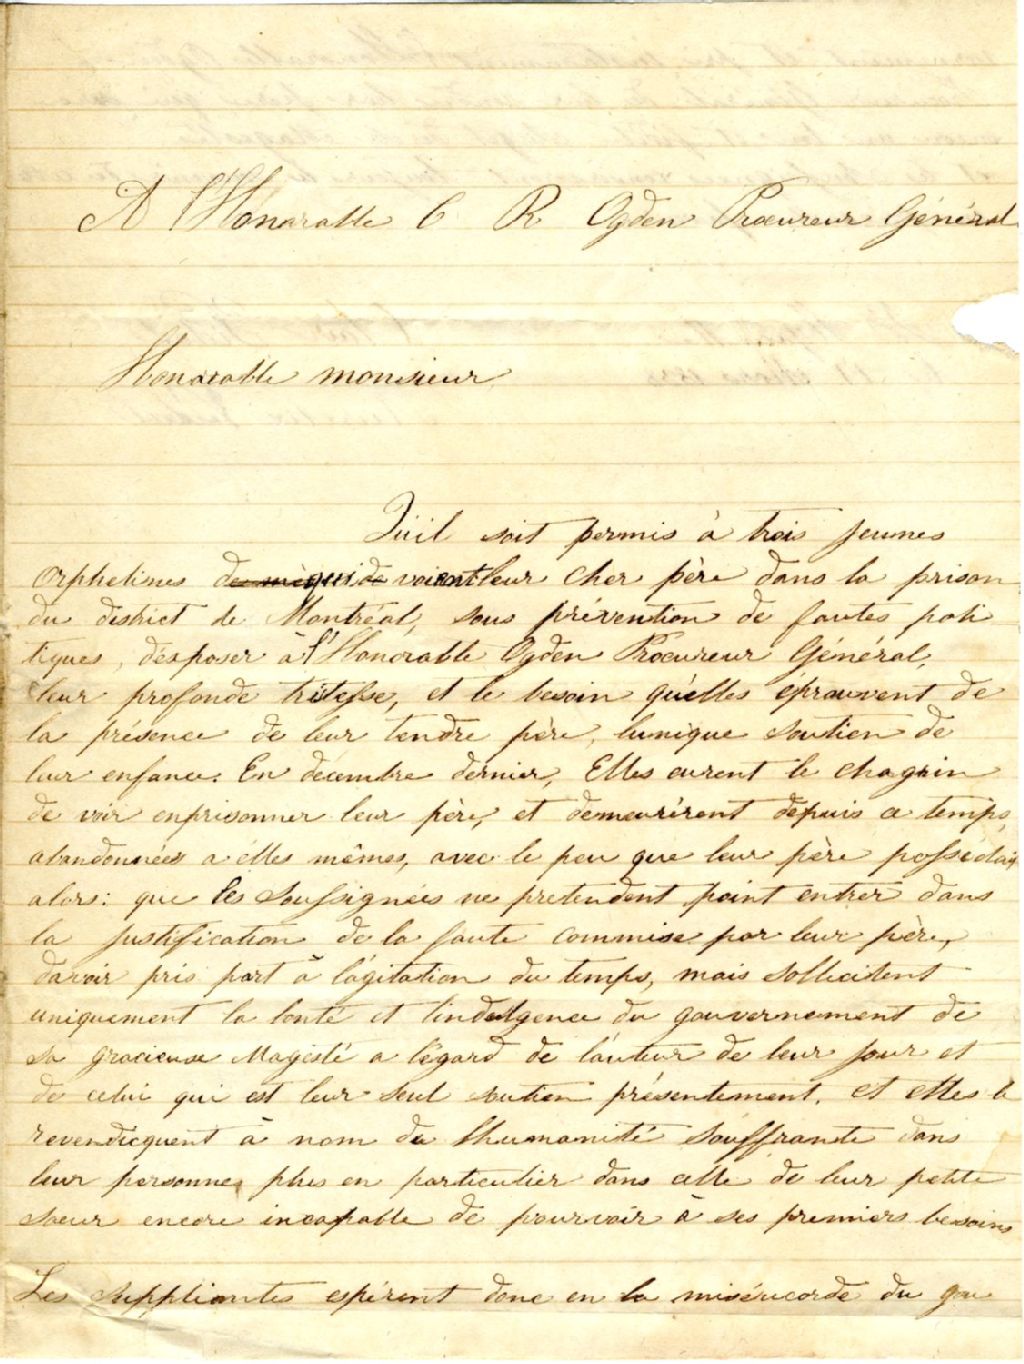 A l'Honorable C R Ogden Procureur Général
Honorable monsieur,
Qu'il soit permis à trois jeunes
Orphelines qui voient leur cher père dans la prison
du district de Montréal, sous prévention de fautes poli
tiques, d'exposer à l'Honorable Ogden Procureur Général,
leur profonde tristesse, et le besoin qu'elles éprouvent de
la présence de leur tendre père, lunique soutien de
leur enfance. En decembre dernier, Elles eurent le chagrin
de voir enprisonner leur père, et demeurèrent depuis ce temps,
abandonnées a elles mêmes, avec le peu que leur père possédait
alors: que les soussignées ne pretendent point entrer dans
la justification de la faute commise par leur père,
davoir pris part à l'agitation du temps, mais sollicitent
uniquement la bonté et l'indulgence du gouvernement de
sa gracieuse Magesté a l'égard de l'auteur de leur jour et
de celui qui est leur seul soutien présentement. et elles le
revendicquent à nom de lhumanité souffrante dans
leur personnes plus en particulier dans celle de leur petite
soeur encore incapable de pourvoir à ses premiers besoins
Les suppliantes espérent donc en la miséricorde du gou